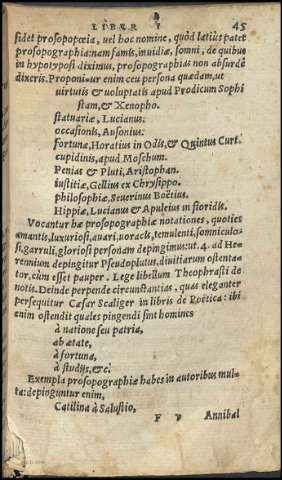 LIBER I 45
sidet prosopopœia, uel hoc nomine, quòd latiùs patet
prosopographia: nam famis, inuidiæ, somni, de quibus
in hypotyposi diximus, prosopographias non absurdè
dixeris. Proponitur enim ceu persona quædam, ut
uirtutis & uoluptatis apud Prodicum Sophi
stam, & Xenopho.
statuariæ, Lucianus.
occasionis, Ausonius.
fortunæ, Horatius in Odis, & Quintus Curt.
cupidinis, apud Moschum.
Penias & Pluti, Aristophan.
iustitiæ, Gellius ex Chrysippo.
philosophiæ, Seuerinus Boëtius.
Hippiæ, Lucianus & Apuleius in floridis.
Vocantur hæ prosopographiæ notationes, quoties
amantis, luxuriosi, auari, uoracis, temulenti, somniculo
si, garruli, gloriosi personam depingimus: ut. 4. ad He-
rennium depingitur Pseudoplutus, diuitiarum ostenta-
tor, cùm esset pauper. Lege libellum Theophrasti de
notis. Deinde perpende circunstantias, quas eleganter
persequitur Cæsar Scaliger in libris de Poëtica: ibi
enim ostendit quales pingendi sint homines
à natione seu patria,
ab ætate,
à fortuna,
à studijs, &c.
Exempla prosopographiæ habes in autoribus mul-
ta: depinguntur enim,
Catilina à Salustio,
F v Annibal